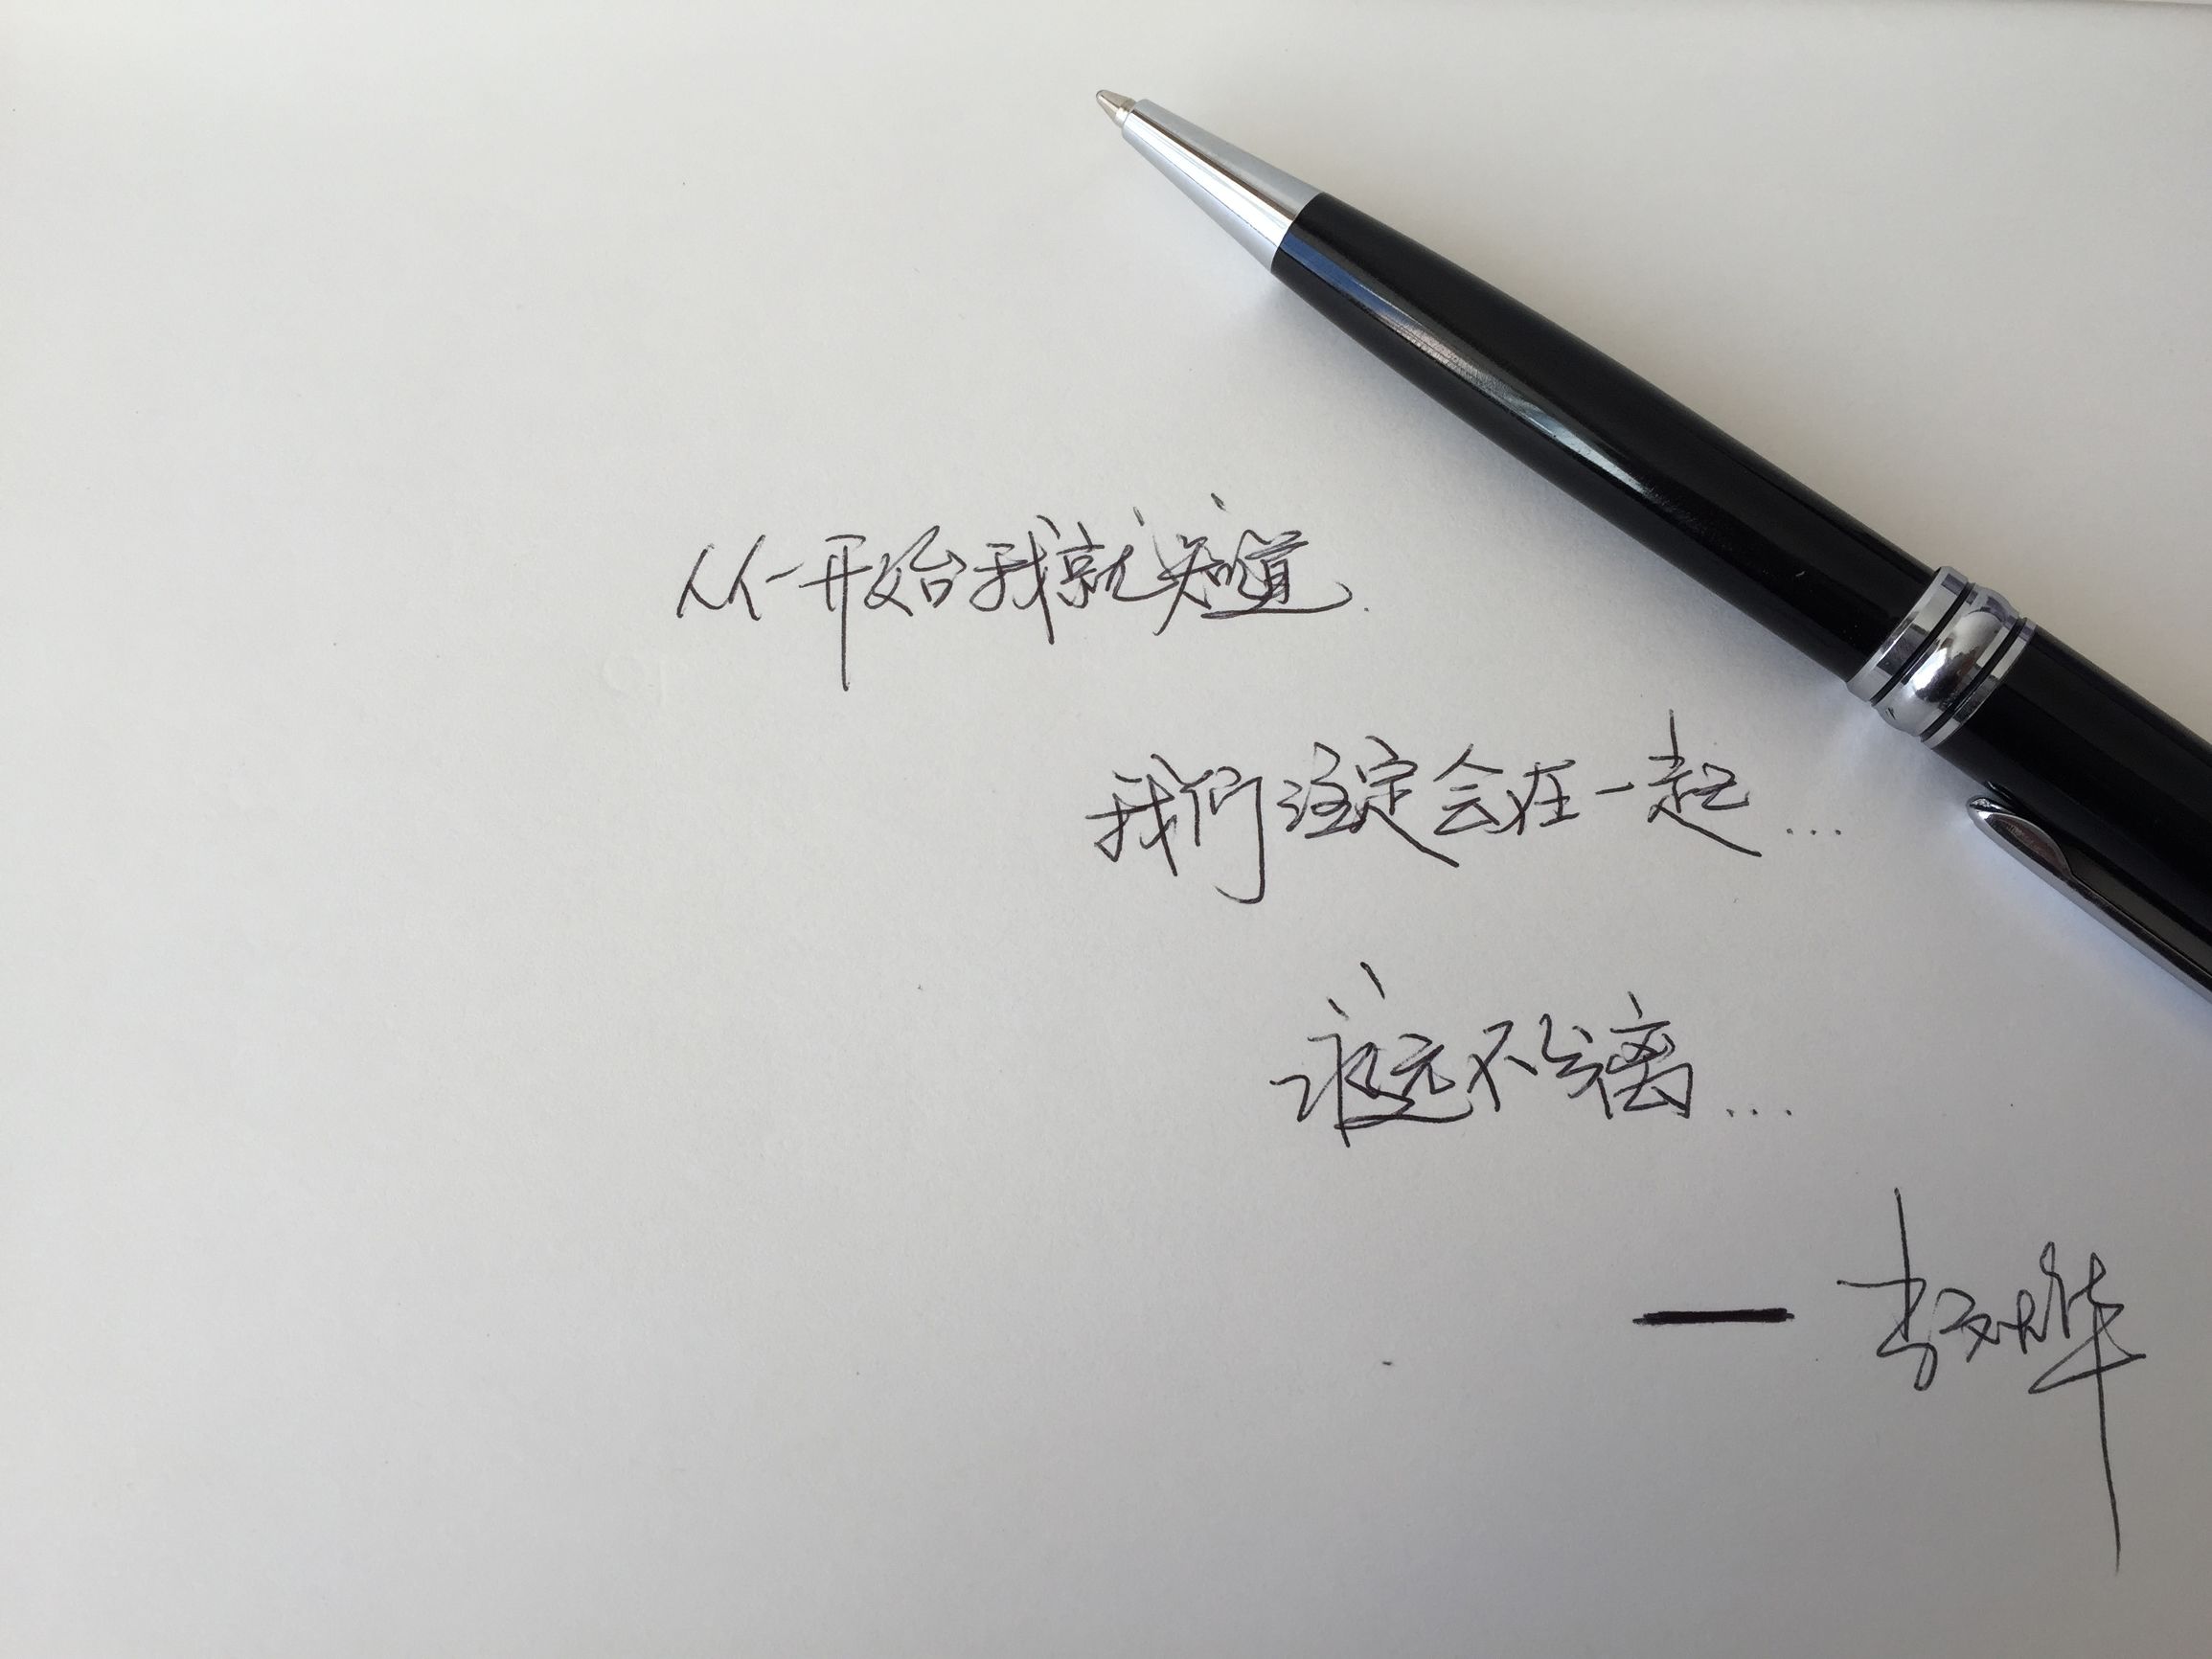 从一开始我就知道.
我们注定会在一起...
永远不分离...
—